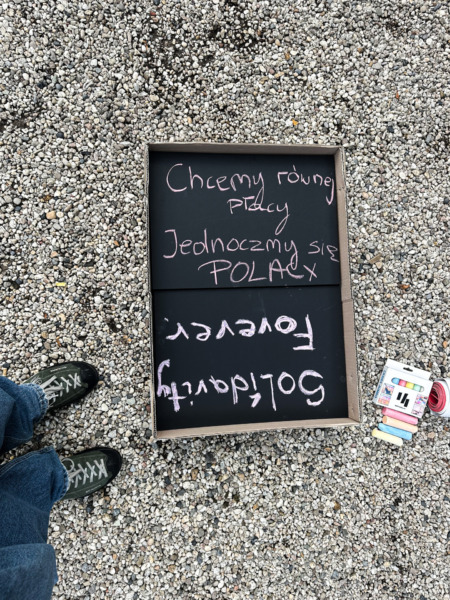 Chcemy równej
płacy
Jednoczmy się
POLACY
Solidarity
Forever.